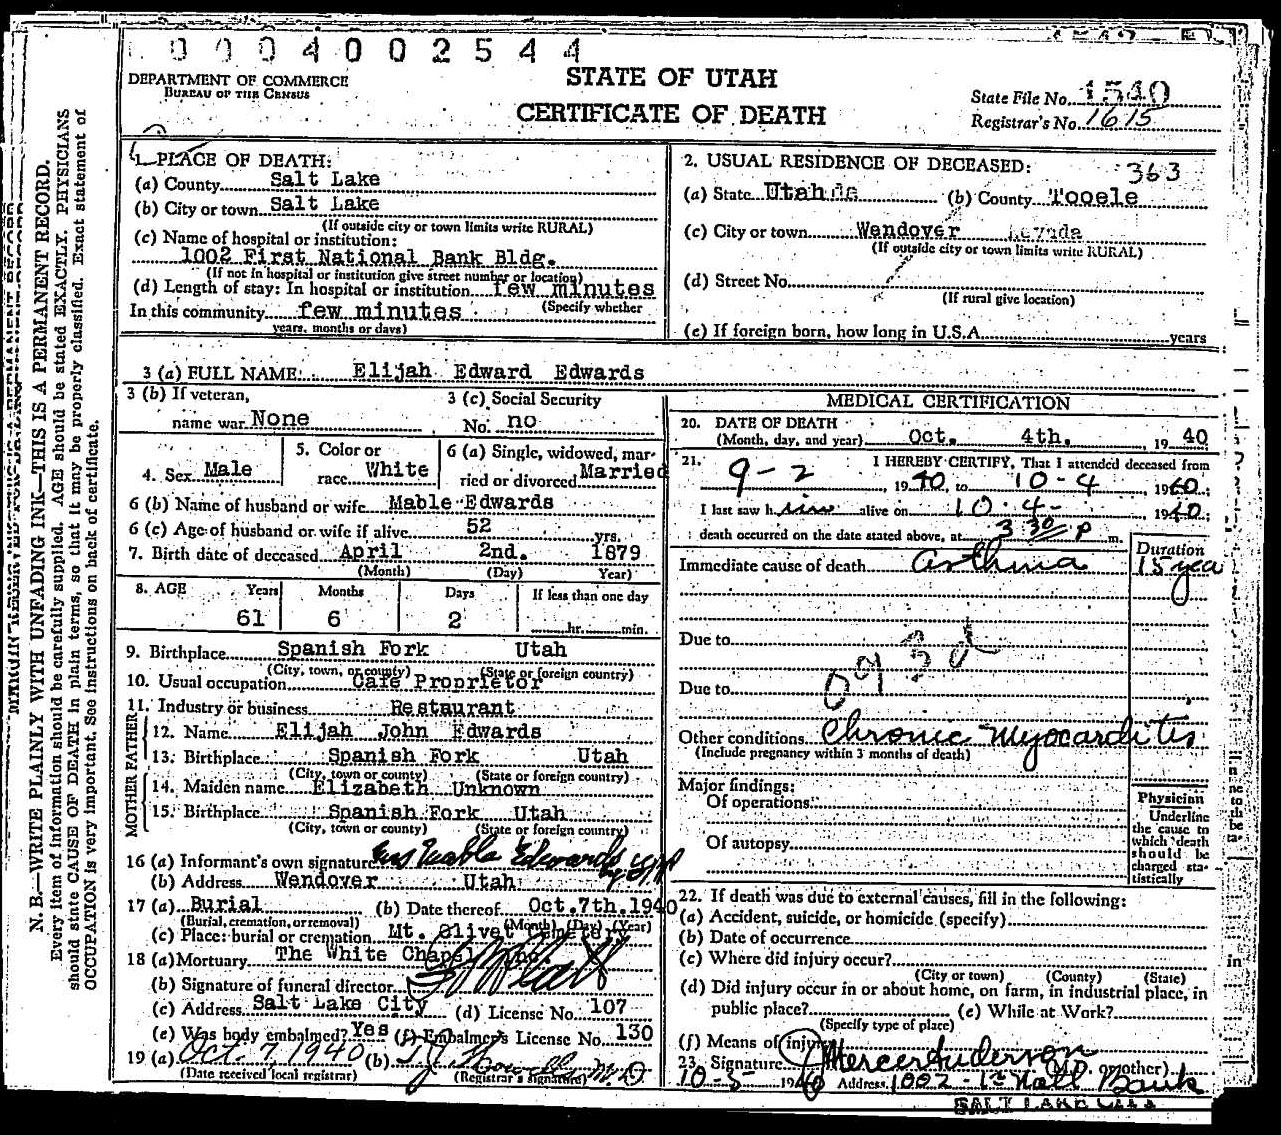 0004002544
DEPARTMENT OF COMMERCE
BUREAU OF THE CENSUS
STATE OF UTAH
CERTIFICATE OF DEATH
State File No. 1540
Registrar's No. 1615
N. B.—WRITE PLAINLY WITH UNFADING INK—THIS IS A PERMANENT RECORD.
Every item of information should be carefully supplied. AGE should be stated EXACTLY. PHYSICIANS
should state CAUSE OF DEATH in plain terms, so that it may be properly classified. Exact statement of
OCCUPATION is very important. See instructions on back of certificate.
1. PLACE OF DEATH:
(a) County Salt Lake
(b) City or town Salt Lake
(If outside city or town limits write RURAL)
(c) Name of hospital or institution:
1002 First National Bank Bldg.
(If not in hospital or institution give street number or location)
(d) Length of stay: In hospital or institution few minutes
In this community few minutes (Specify whether
years, months or days)
2. USUAL RESIDENCE OF DECEASED: 363
(a) State Utah (b) County Tooele
(c) City or town Wendover
(If outside city or town limits write RURAL)
(d) Street No.
(If rural give location)
(e) If foreign born, how long in U.S.A. years
3 (a) FULL NAME: Elijah Edward Edwards
3 (b) If veteran,
name war None
3 (c) Social Security
No. no
4. Sex Male
5. Color or
race White
6 (a) Single, widowed, mar-
ried or divorced Married
6 (b) Name of husband or wife Mable Edwards
6 (c) Age of husband or wife if alive 52 yrs.
7. Birth date of deceased April 2nd. 1879
(Month) (Day) Year)
8. AGE Years Months Days If less than one day
61 6 2 hr. min.
9. Birthplace Spanish Fork Utah
(City, town, or county) (State or foreign country)
10. Usual occupation Cafe Proprietor
11. Industry or business Restaurant
FATHER
12. Name Elijah John Edwards
13. Birthplace Spanish Fork Utah
(City, town or county) (State or foreign country)
MOTHER
14. Maiden name Elizabeth Unknown
15. Birthplace Spanish Fork Utah
(City, town or county) (State or foreign country)
16 (a) Informant's own signature Mrs Mable Edwards
(b) Address Wendover Utah
17 (a) Burial (b) Date thereof Oct.7th.1940
(Burial, cremation, or removal) (Month) (Day) (Year)
(c) Place: burial or cremation Mt. Olivet Cemetery
18 (a) Mortuary The White Chapel Inc.
(b) Signature of funeral director
(c) Address Salt Lake City (d) License No. 107
(e) Was body embalmed? Yes (f) Embalmer's License No. 130
19 (a) Oct. 7, 1940 (b) M.D.
(Date received local registrar) (Registrar's signature)
MEDICAL CERTIFICATION
20. DATE OF DEATH
(Month, day, and year) Oct. 4th. 1940
21. I HEREBY CERTIFY, That I attended deceased from
9-2 1940, to 10-4, 1940;
I last saw h im alive on 10-4-, 1940;
death occurred on the date stated above, at 3 30 P m.
Immediate cause of death Asthma
Duration
15 yea
Due to
Due to
Other conditions Chronic Myocarditis
(Include pregnancy within 3 months of death)
Major findings:
Of operations
Of autopsy
Physician
Underline
the cause to
which death
should be
charged sta-
tistically
22. If death was due to external causes, fill in the following:
(a) Accident, suicide, or homicide (specify)
(b) Date of occurrence
(c) Where did injury occur?
(City or town) (County) (State)
(d) Did injury occur in or about home, on farm, in industrial place, in
public place? (e) While at Work?
(Specify type of place)
(f) Means of injury
23. Signature Mercer Anderson
(M.D. or other)
10-5- 1940 Address 1002 - 1st Natl Bank
SALT LAKE